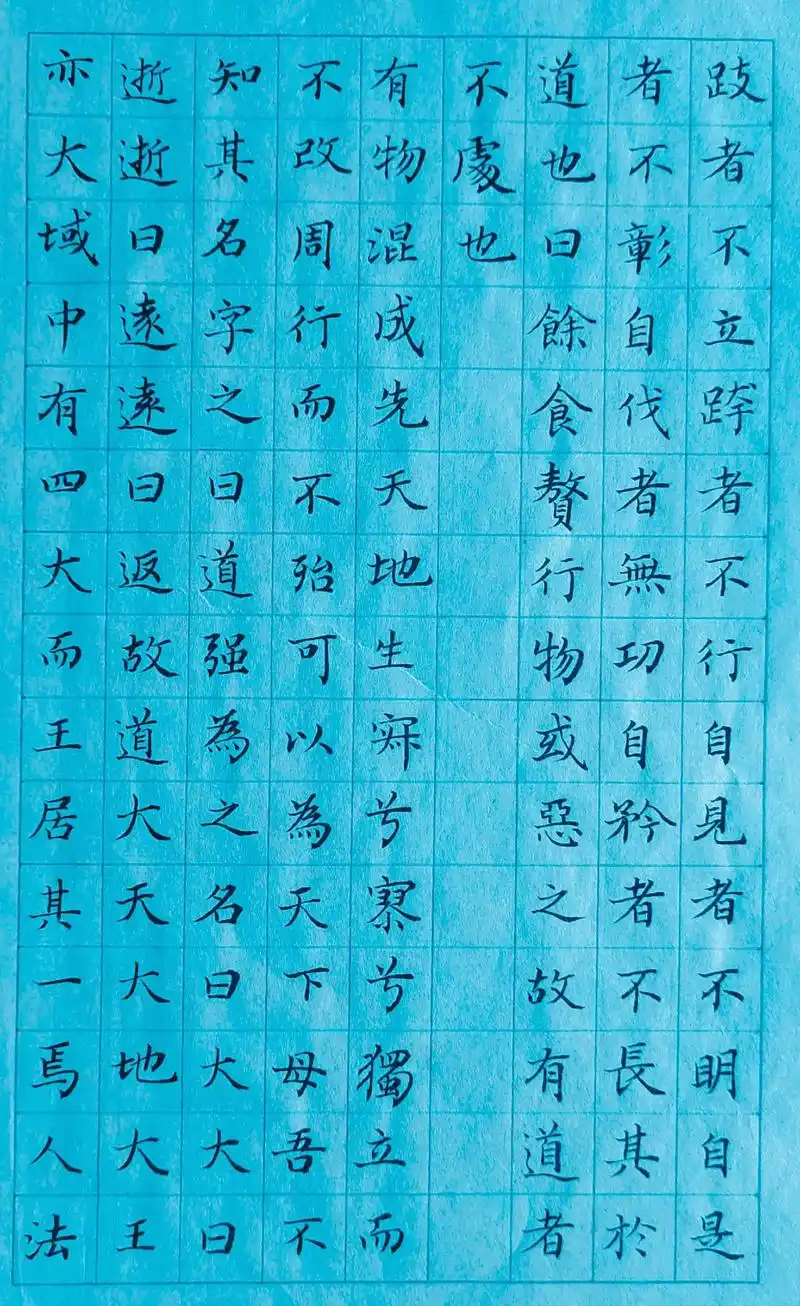 跂者不立跨者不行自見者不明自是
者不彰自伐者無功自矜者不長其於
道也曰餘食贅行物或惡之故有道者
不處也
有物混成先天地生寂兮寥兮獨立而
不改周行而不殆可以為天下母吾不
知其名字之曰道强為之名曰大大曰
逝逝曰遠遠曰返故道大天大地大王
亦大域中有四大而王居其一焉人法